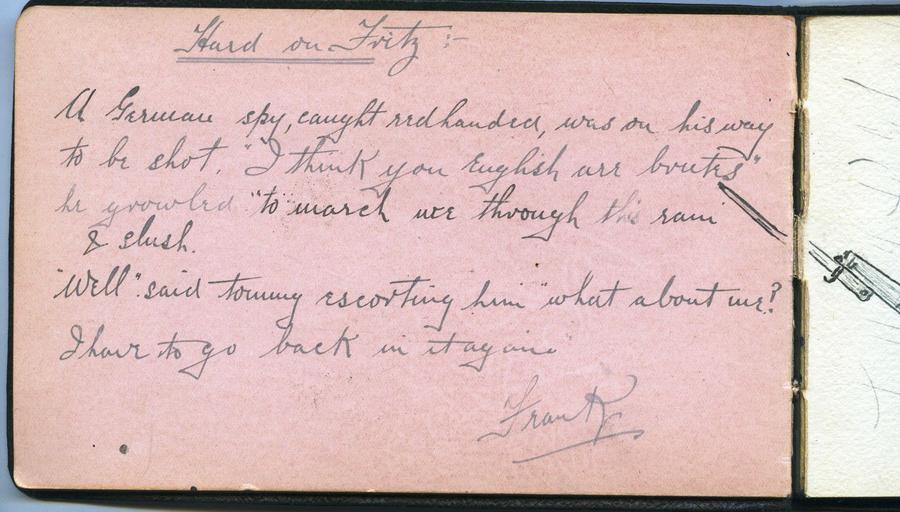 Hard on Fritz :-
A German spy, caught redhanded, was on his way
to be shot. "I think you English are brutes"
he growled "to march me through this rain
& slush.
"Well". said tommy escorting him "what about me?
I have to go back in it again"
Frank